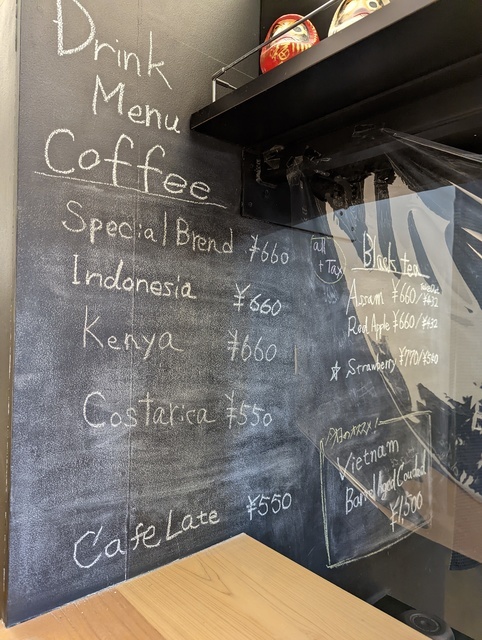 Drink
Menu
Coffee
Special Brend ¥660
Indonesia ¥660
Kenya ¥660
Costarica ¥550
Cafe Late ¥550
all
+Tax
Black tea
Assam ¥660/¥432
Red Apple ¥660/¥432
☆ Strawberry ¥770/¥540
Vietnam
Barrel Aged
¥1,500